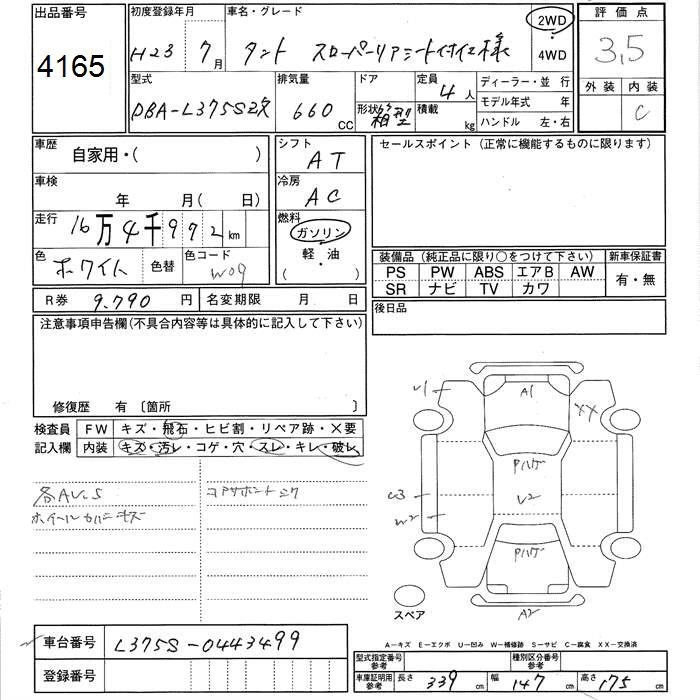 出品番号
4165
初度登録年月
H23年 7月
車名・グレード
タント スローパーリアシート付仕様
2WD
4WD
評価点
3.5
外装 内装
C
型式
DBA-L375S改
排気量
660 CC
ドア
形状 箱型
定員
4人
積載 kg
ディーラー・並行
モデル年式 年
ハンドル 左・右
車歴
自家用・( )
車検
年 月(日)
走行
16万4千972km
色
ホワイト
色替
色コード
W09
シフト
AT
冷房
AC
燃料
ガソリン
軽・油
( )
セールスポイント (正常に機能するものに限ります)
装備品 (純正品に限り○をつけて下さい)
PS PW ABS エアB AW
SR ナビ TV カワ
新車保証書
有・無
R券 9.790円
名変期限 月 日
後日品
注意事項申告欄(不具合内容等は具体的に記入して下さい)
修復歴 有 〔箇所 〕
検査員
記入欄
FW キズ・飛石・ヒビ割・リペア跡・X要
内装 キズ・汚レ・コゲ・穴・スレ・キレ・破レ
各AU.S
ホイールカバーキズ
U1
A1
XX
Pハゲ
U2
U3
W2
Pハゲ
A2
スペア
車台番号 L375S-0443499
登録番号
A-キズ E-エクボ U-凹み W-補修跡 S-サビ C-腐食 XX-交換済
型式指定番号
参考
種別区分番号
参考
車庫証明用
参考
長さ 339cm
幅 147cm
高さ 175cm